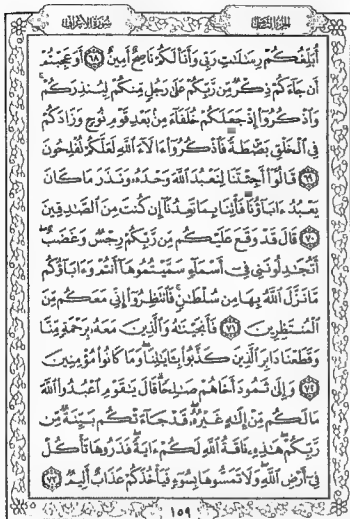 سُورَةُ الأَعْرَافِ
الجُزءُ الثَّامِنُ
أُبَلِّغُكُمْ رِسَٰلَٰتِ رَبِّى وَأَنَا۠ لَكُمْ نَاصِحٌ أَمِينٌ ٦٨ أَوَعَجِبْتُمْ
أَن جَآءَكُمْ ذِكْرٌ مِّن رَّبِّكُمْ عَلَىٰ رَجُلٍ مِّنكُمْ لِيُنذِرَكُمْ ۚ
وَٱذْكُرُوٓا۟ إِذْ جَعَلَكُمْ خُلَفَآءَ مِنۢ بَعْدِ قَوْمِ نُوحٍ وَزَادَكُمْ
فِى ٱلْخَلْقِ بَصْۜطَةً ۖ فَٱذْكُرُوٓا۟ ءَالَآءَ ٱللَّهِ لَعَلَّكُمْ تُفْلِحُونَ
٦٩ قَالُوٓا۟ أَجِئْتَنَا لِنَعْبُدَ ٱللَّهَ وَحْدَهُۥ وَنَذَرَ مَا كَانَ
يَعْبُدُ ءَابَآؤُنَا ۖ فَأْتِنَا بِمَا تَعِدُنَآ إِن كُنتَ مِنَ ٱلصَّٰدِقِينَ
٧٠ قَالَ قَدْ وَقَعَ عَلَيْكُم مِّن رَّبِّكُمْ رِجْسٌ وَغَضَبٌ ۖ
أَتُجَٰدِلُونَنِى فِىٓ أَسْمَآءٍ سَمَّيْتُمُوهَآ أَنتُمْ وَءَابَآؤُكُم
مَّا نَزَّلَ ٱللَّهُ بِهَا مِن سُلْطَٰنٍ ۚ فَٱنتَظِرُوٓا۟ إِنِّى مَعَكُم مِّنَ
ٱلْمُنتَظِرِينَ ٧١ فَأَنجَيْنَٰهُ وَٱلَّذِينَ مَعَهُۥ بِرَحْمَةٍ مِّنَّا
وَقَطَعْنَا دَابِرَ ٱلَّذِينَ كَذَّبُوا۟ بِـَٔايَٰتِنَا ۖ وَمَا كَانُوا۟ مُؤْمِنِينَ
٧٢ وَإِلَىٰ ثَمُودَ أَخَاهُمْ صَٰلِحًا ۗ قَالَ يَٰقَوْمِ ٱعْبُدُوا۟ ٱللَّهَ
مَا لَكُم مِّنْ إِلَٰهٍ غَيْرُهُۥ ۖ قَدْ جَآءَتْكُم بَيِّنَةٌ مِّن
رَّبِّكُمْ ۖ هَٰذِهِۦ نَاقَةُ ٱللَّهِ لَكُمْ ءَايَةً ۖ فَذَرُوهَا تَأْكُلْ
فِىٓ أَرْضِ ٱللَّهِ ۖ وَلَا تَمَسُّوهَا بِسُوٓءٍ فَيَأْخُذَكُمْ عَذَابٌ أَلِيمٌ ٧٣
١٥٩